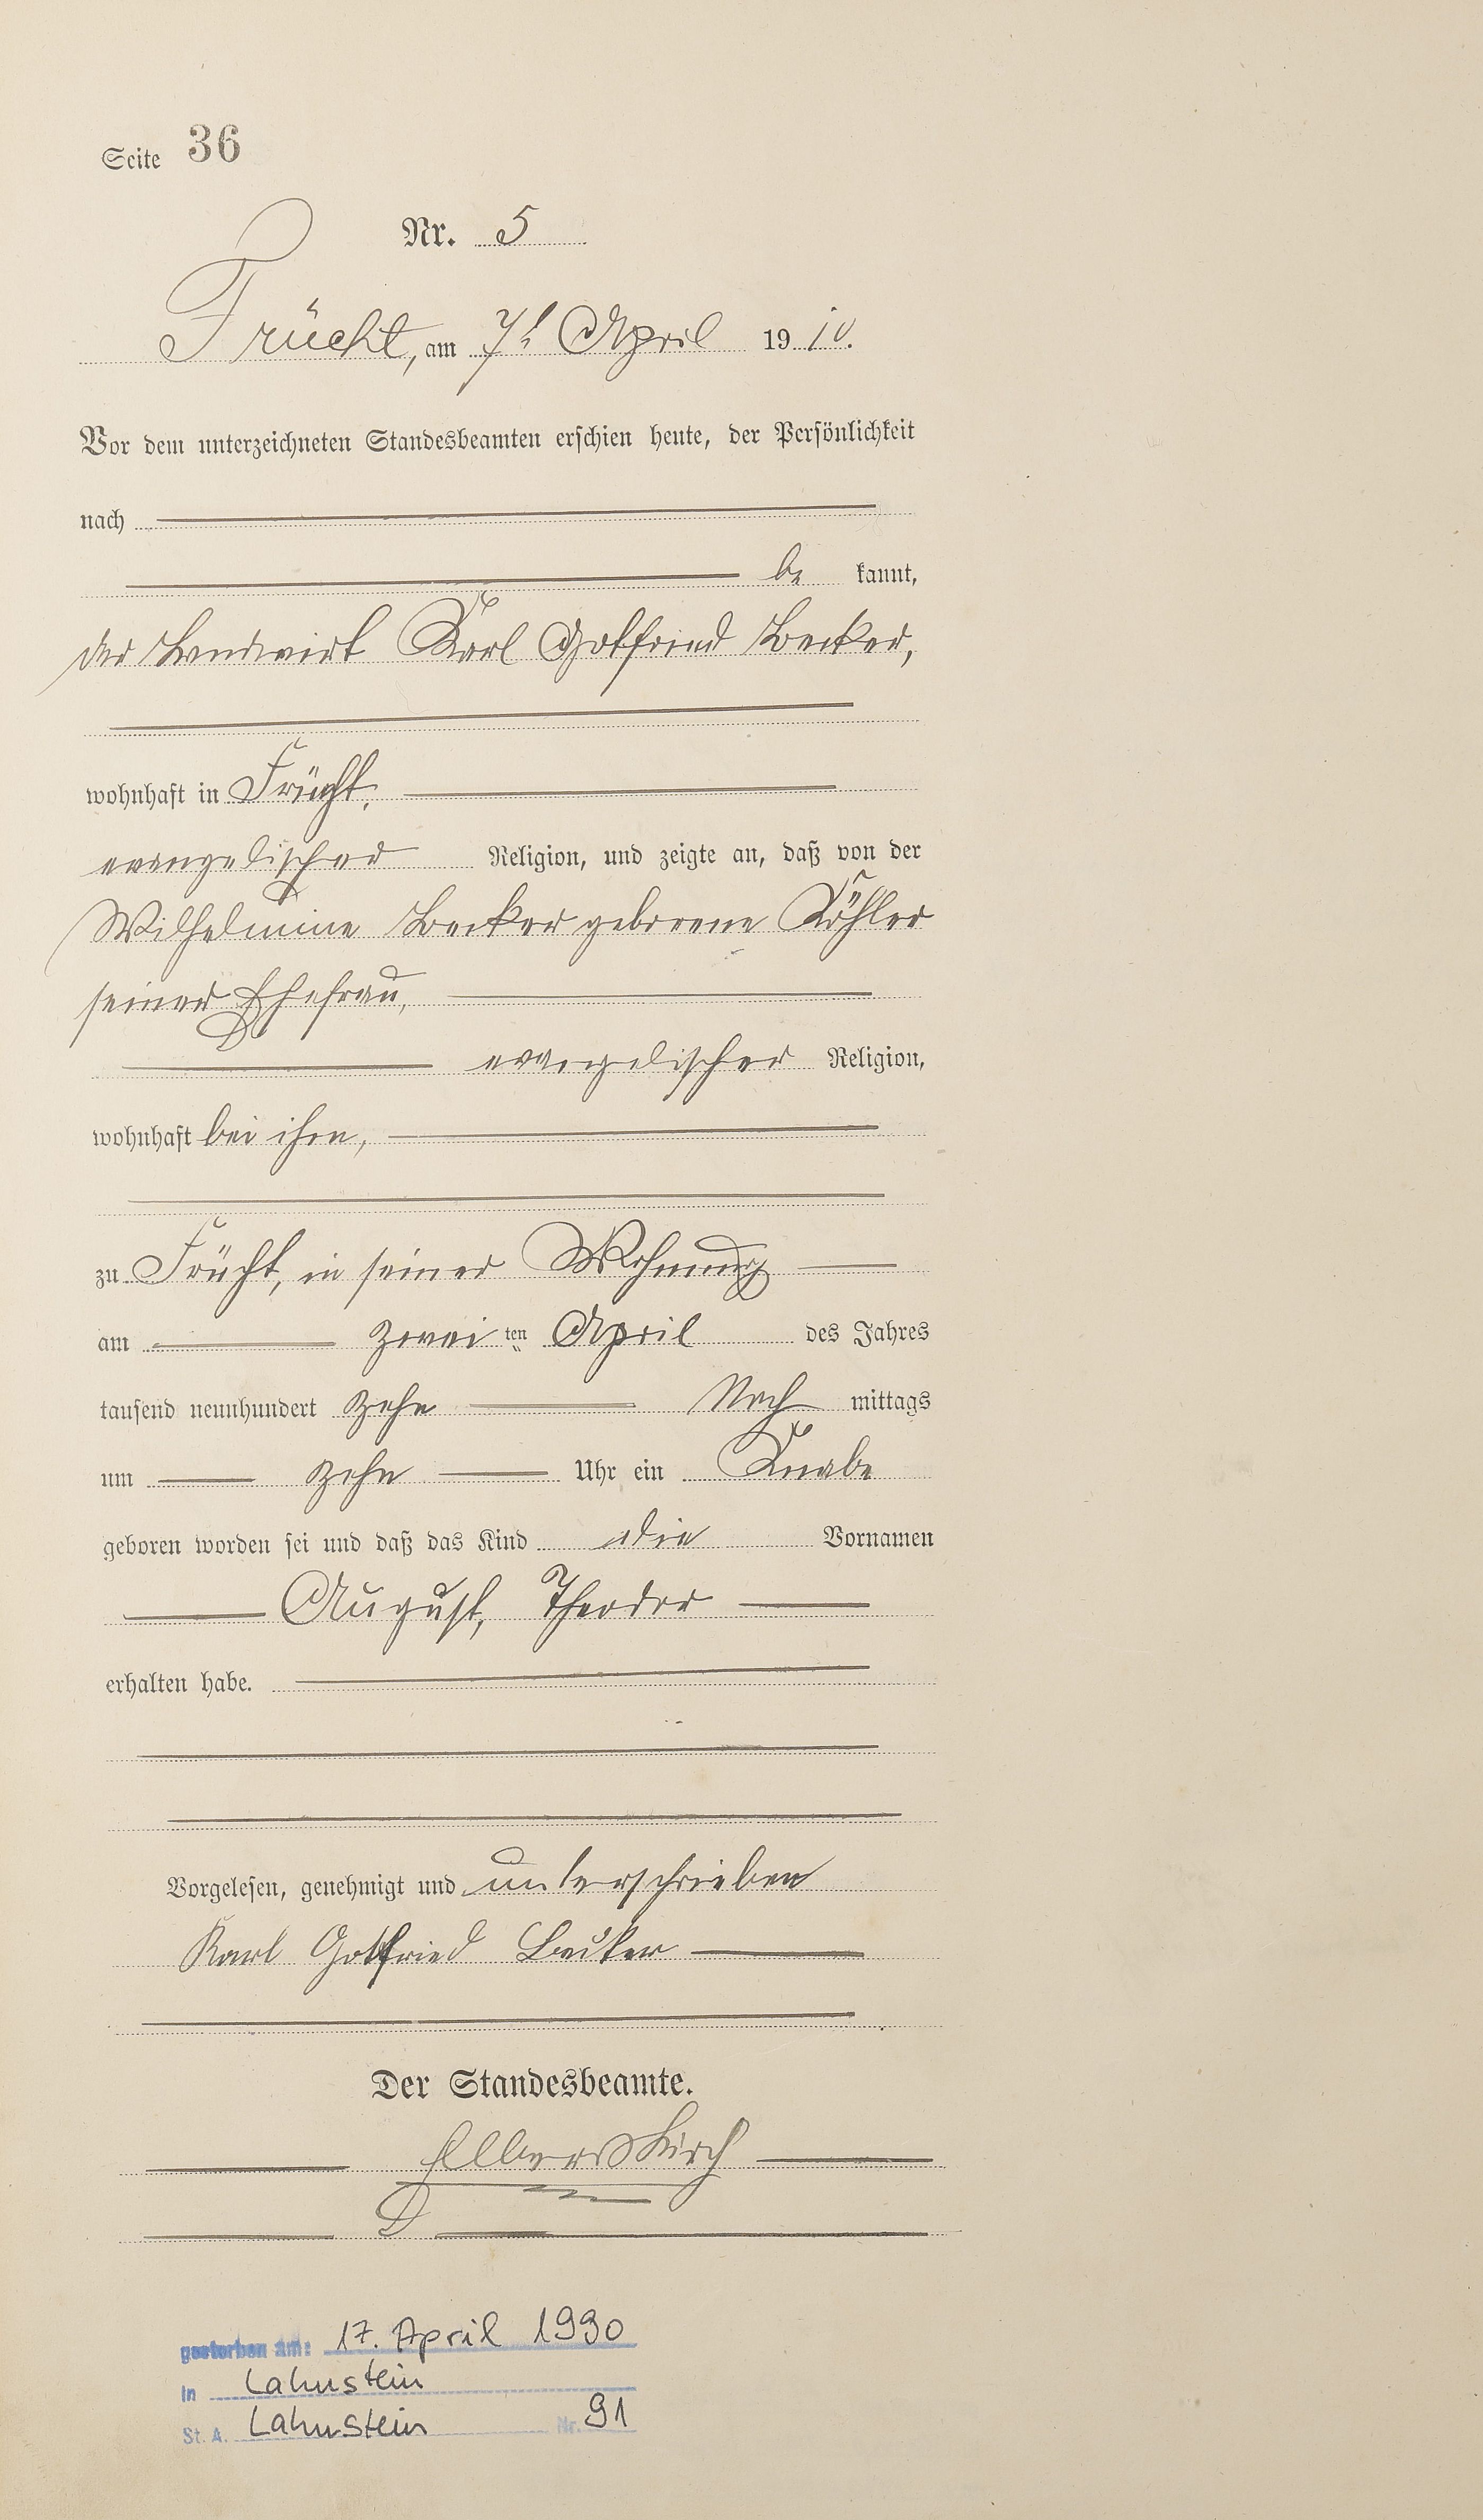 Seite 36
Nr. 5
Frücht, am 7t April 1910.
Vor dem unterzeichneten Standesbeamten erschien heute, der Persönlichkeit
nach
be kannt,
der Landwirt Karl Gottfried Becker,
wohnhaft in Frücht,
evangelischer Religion, und zeigte an, daß von der
Wilhelmine Becker geborene Köhler
seiner Ehefrau,
evangelischer Religion,
wohnhaft bei ihm,
zu Frücht, in seiner Wohnung
am zweiten April des Jahres
tausend neunhundert zehn Nach mittags
um zehn Uhr ein Knabe
geboren worden sei und daß das Kind die Vornamen
August, Theodor
erhalten habe.
Vorgelesen, genehmigt und unterschrieben
Karl Gottfried Becker
Der Standesbeamte.
Elberskirch
gestorben am: 17. April 1990
in Lahnstein
St. A. Lahnstein Nr. 91